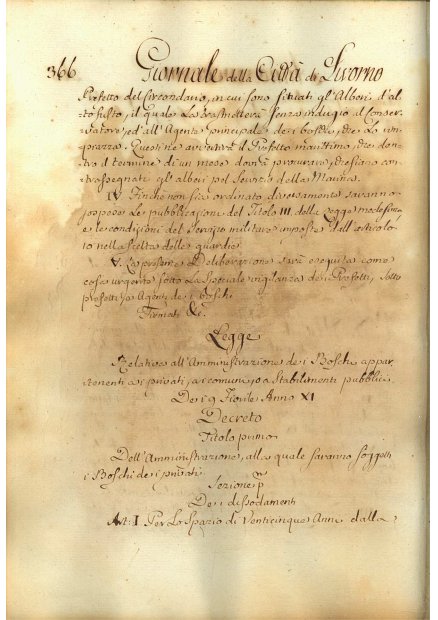 366 Giornale della Città di Livorno
Prefetto del circondario, in cui sono situati gl'Alberi d'al-
to fusto, il quale la trasmetterà senza indugio al Conser-
vatore, ed all'Agente principale dei boschi, che lo rim-
piazza. Questi ne avvertirà il Prefetto marittimo, che den-
tro il termine di un mese dovrà procurare, che siano con-
trosegnati gli alberi pel Servizio della Marina.
IV. Finchè non sia ordinato diversamente saranno
sospese le pubblicazioni del Titolo III della legge medesima
e le condizioni del Servizio militare imposte dall'articolo
10 nella scelta delle guardie.
V. La presente Deliberazione sarà eseguita come
cosa urgente sotto la speciale vigilanza dei Prefetti, Sotto
prefetti, e Agenti dei boschi.
Firmati &c.
Legge
Relativa all'Amministrazione dei Boschi appar-
tenenti a i privati, a i comuni, o a Stabilimenti pubblici.
Dei 9 Fiorile Anno XI
Decreto
Titolo primo
Dell'Amministrazione, alla quale saranno soggetti
i Boschi dei privati.
Sezione p.ª
Dei dissodamenti
Art: I Per lo spazio di Venticinque Anni dalla